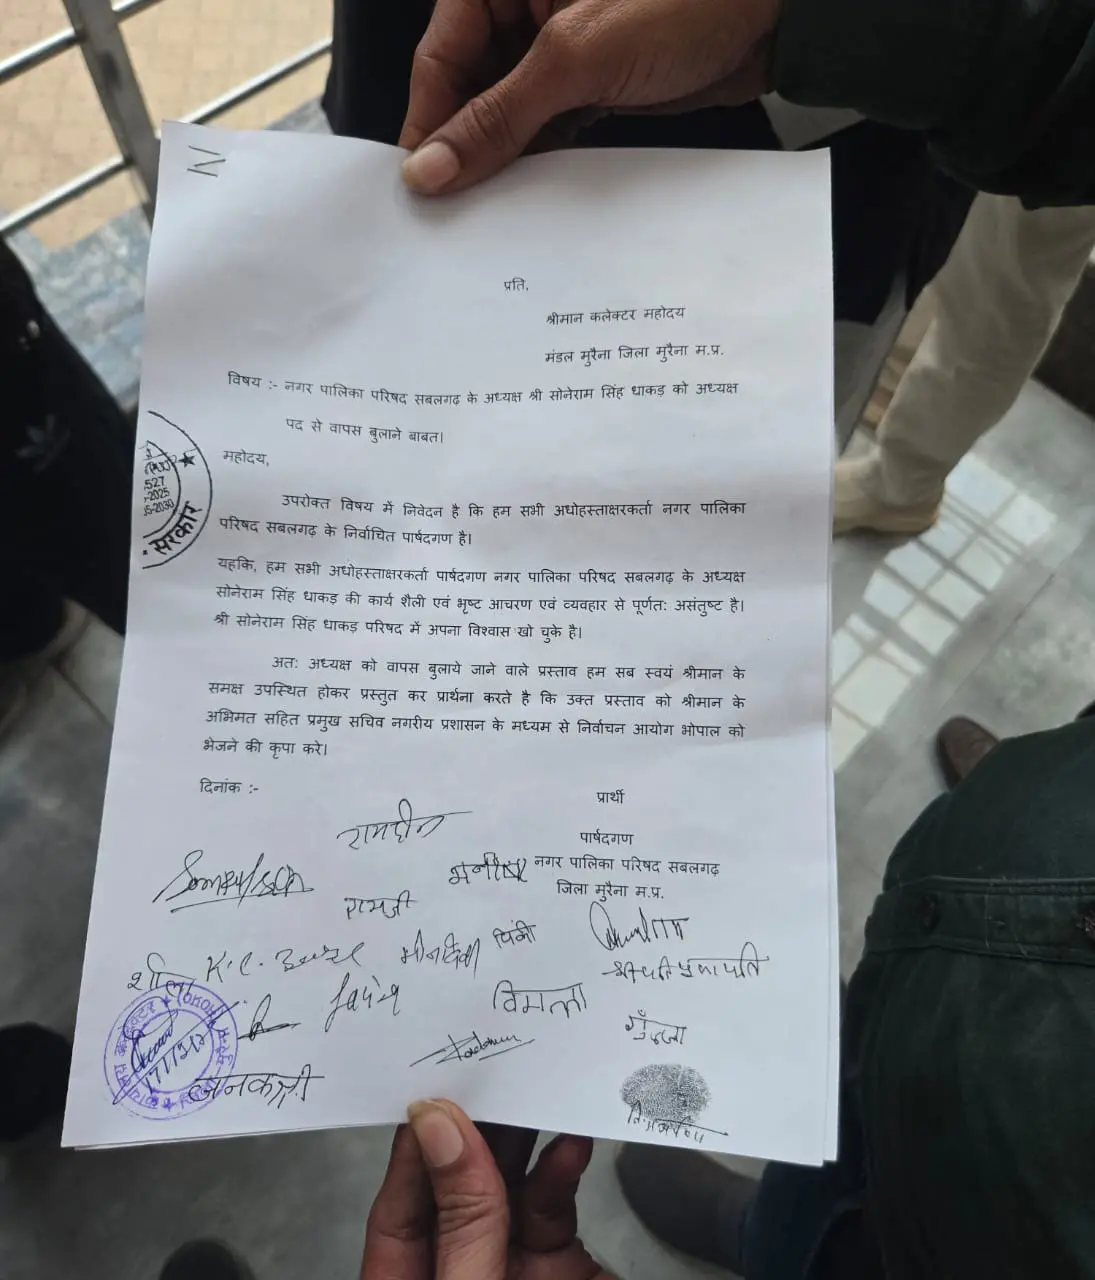 प्रति,
श्रीमान कलेक्टर महोदय
मंडल मुरैना जिला मुरैना म.प्र.
विषय :- नगर पालिका परिषद सबलगढ़ के अध्यक्ष श्री सोनेराम सिंह धाकड़ को अध्यक्ष
पद से वापस बुलाने बाबत।
महोदय,
उपरोक्त विषय में निवेदन है कि हम सभी अधोहस्ताक्षरकर्ता नगर पालिका
परिषद सबलगढ़ के निर्वाचित पार्षदगण है।
527
-2025
सरकार
यहकि, हम सभी अधोहस्ताक्षरकर्ता पार्षदगण नगर पालिका परिषद सबलगढ़ के अध्यक्ष
सोनेराम सिंह धाकड़ की कार्य शैली एवं भृष्ट आचरण एवं व्यवहार से पूर्णत: असंतुष्ट है।
श्री सोनेराम सिंह धाकड़ परिषद में अपना विश्वास खो चुके है।
अत: अध्यक्ष को वापस बुलाये जाने वाले प्रस्ताव हम सब स्वयं श्रीमान के
समक्ष उपस्थित होकर प्रस्तुत कर प्रार्थना करते है कि उक्त प्रस्ताव को श्रीमान के
अभिमत सहित प्रमुख सचिव नगरीय प्रशासन के मध्यम से निर्वाचन आयोग भोपाल को
भेजने की कृपा करे।
दिनांक :-
प्रार्थी
पार्षदगण
नगर पालिका परिषद सबलगढ़
जिला मुरैना म.प्र.
रामदीन
रामजी
पिंकी
श्रीपति प्रजापति
विमला